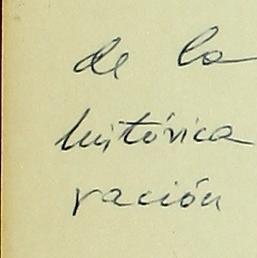 de la
histórica
ración